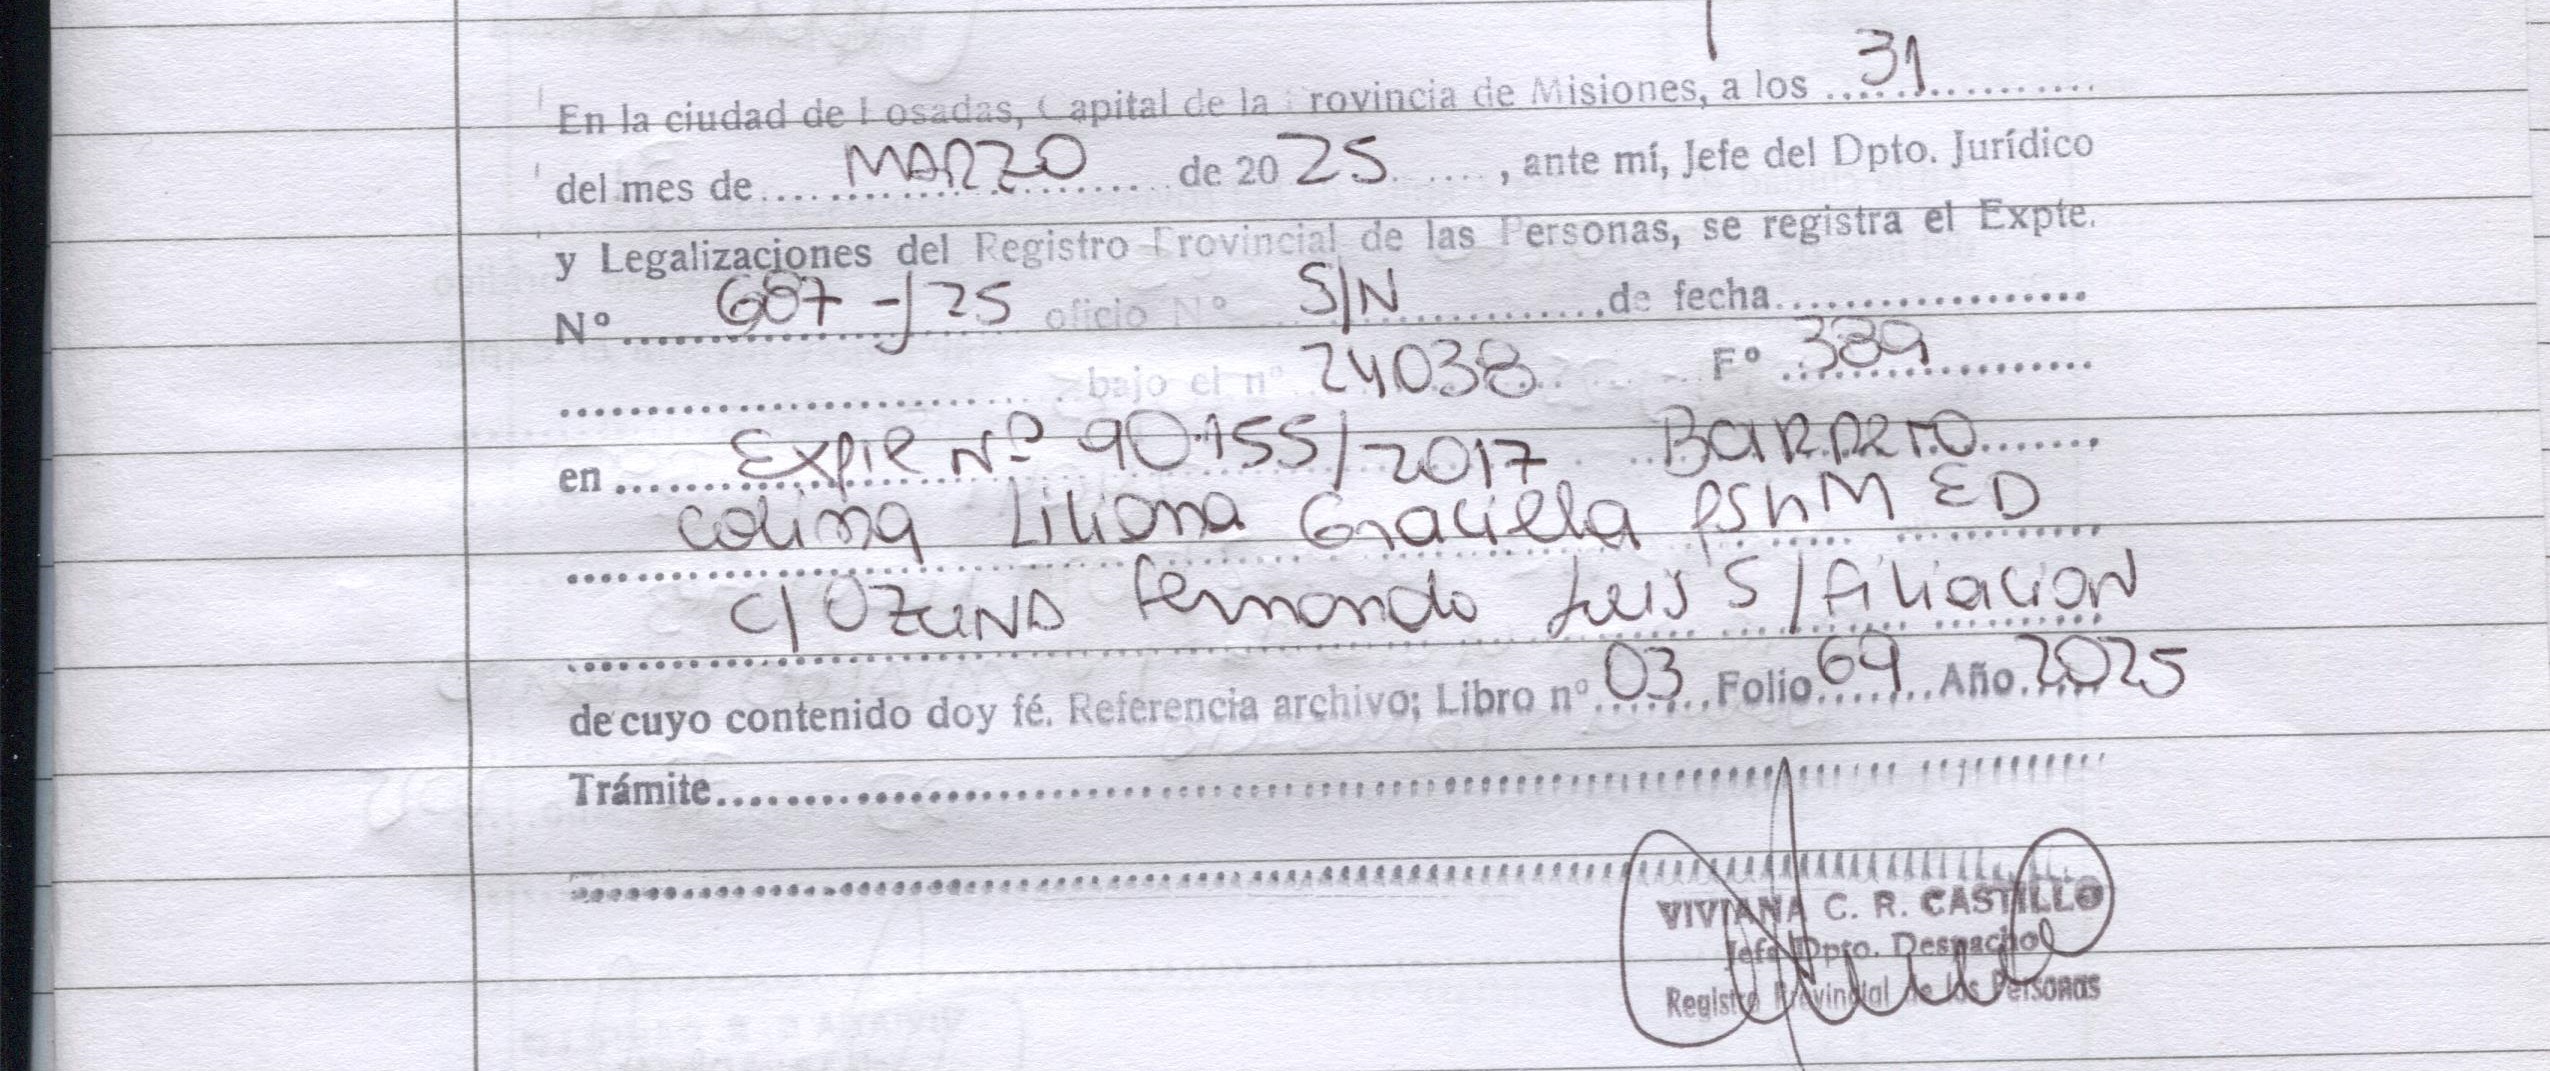 En la ciudad de Posadas, Capital de la Provincia de Misiones, a los 31
del mes de MARZO de 2025, ante mí, Jefe del Dpto. Jurídico
y Legalizaciones del Registro Provincial de las Personas, se registra el Expte.
Nº 687-/25 oficio Nº S/N de fecha
bajo el nº 24038 Fº 389
en Expte Nº 90.155/2017 Barreto
Liliana Graciella
c/ Ozuna Fernando Luis S/ filiacion
de cuyo contenido doy fé. Referencia archivo; Libro nº 03 Folio 69 Año 2025
Trámite
VIVIANA C. R. CASTILLO
Jefe Dpto. Despacho
Registro Provincial de las Personas